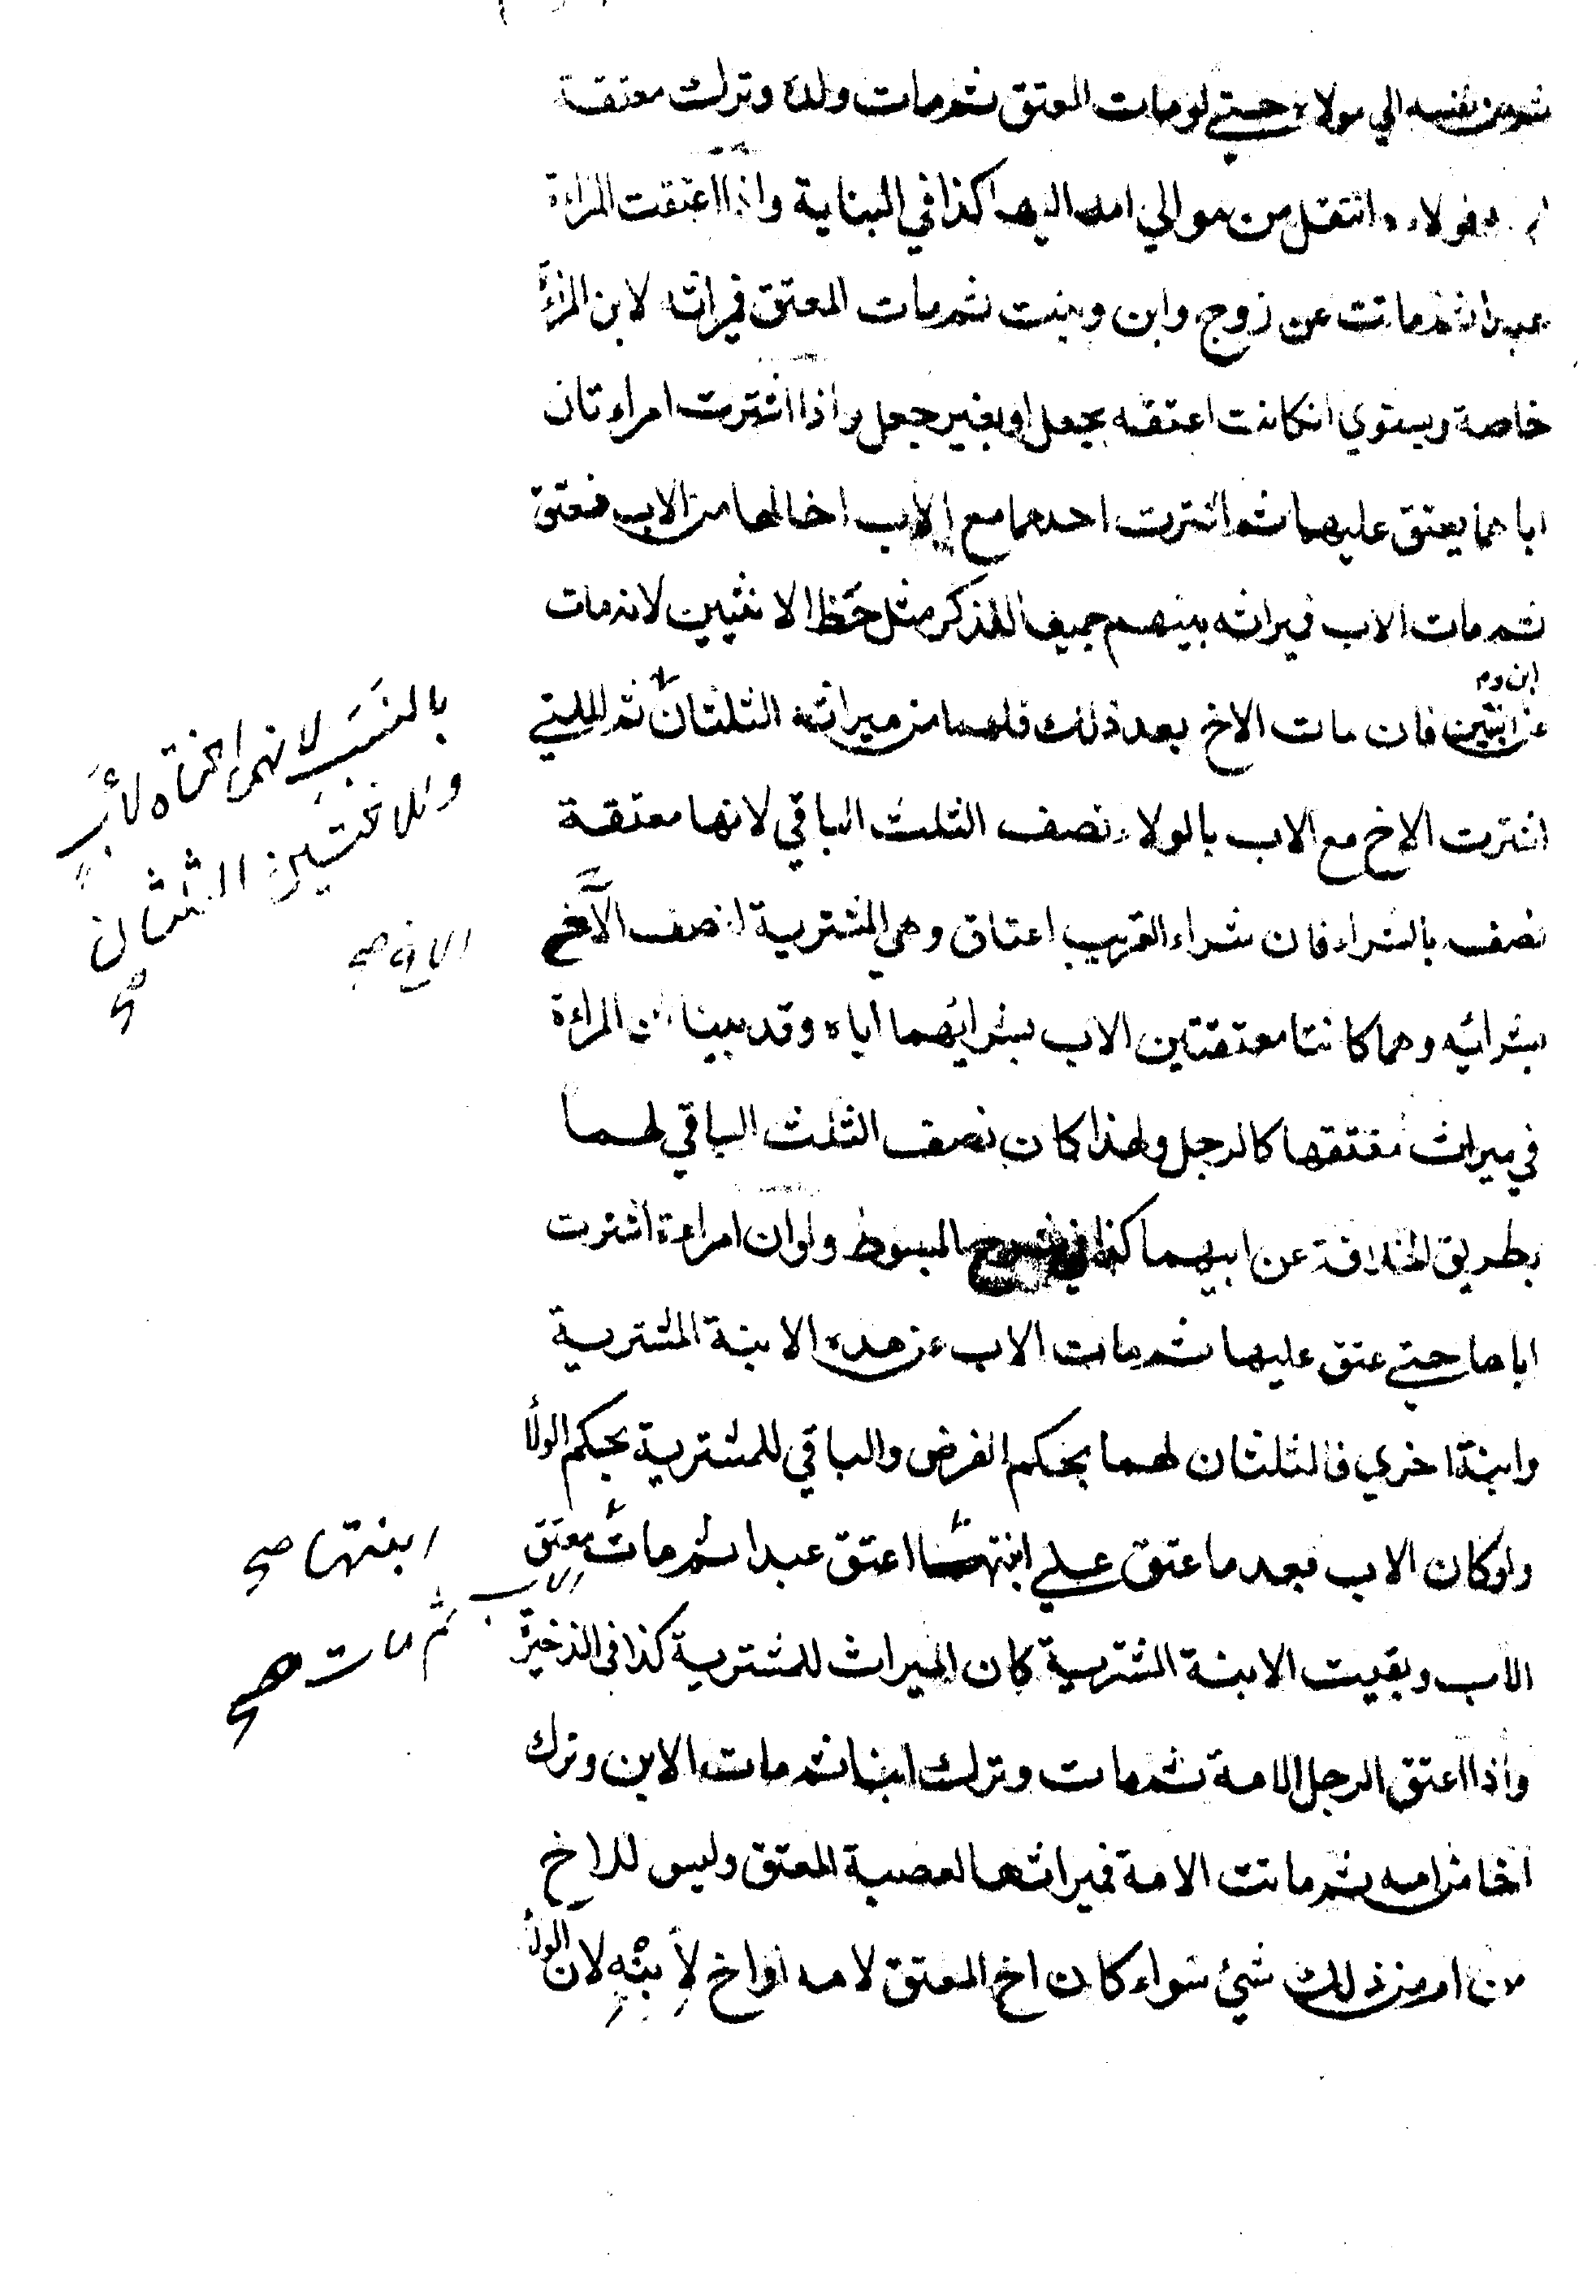 ثم من نفسه الي مولاه حتي لو مات المعتق ثم مات ولده وترك معتقة
فولاءه انتقل من موالي امه اليها كذا في البناية واذا اعتقت المراءة
عبدا ثم ماتت عن زوج وابن وبنت ثم مات المعتق فميراثه لابن المراءة
خاصة ويستوي انكانت اعتقه بجعل او بغير جعل واذا اشترت امراءتان
اباهما يعتق عليهما ثم اشترت احدهما مع الاب اخا لهما من الاب فعتق
ثم مات الاب فميراثه بينهم جميعا للذكر مثل حظ الانثيين لانه مات
ابن و
عن ابنتين فان مات الاخ بعد ذلك فلهما من ميراثه الثلثان ثم للتي
بالنسب لانهما اختاه لاب
وللاختين الثلثان
صح
اشترت الاخ مع الاب بالولاء نصف الثلث الباقي لانها معتقة
نصفه بالشراء فان شراء القريب اعتاق وهي المشترية نصف الاخ
صح
بشرائه وهما كانتا معتقتين الاب بشرائهما اياه وقد بينا ان المراءة
في ميراث معتقها كالرجل ولهذا كان نصف الثلث الباقي لهما
بطريق الخلافة عن ابيهما كذا في المبسوط ولو ان امراءة اشترت
اباها حتي عتق عليها ثم مات الاب عن هذه الابنة المشترية
وابنة اخري فالثلثان لهما بحكم الفرض والباقي للمشترية بحكم الولا
ولو كان الاب بعد ما عتق علي ابنتها اعتق عبدا ثم مات معتق
ابنتها صح
الاب ثم مات صح
الاب وبقيت الابنة المشترية كان الميراث للمشترية كذا في الذخيرة
واذا اعتق الرجل الامة ثم مات وترك ابنا ثم مات الابن وترك
اخا من امه ثم ماتت الامة فميراثها لعصبة المعتق وليس للاخ
من ام من ذلك شيئ سواء كان اخ المعتق لامه او اخ لابنه لان الولا